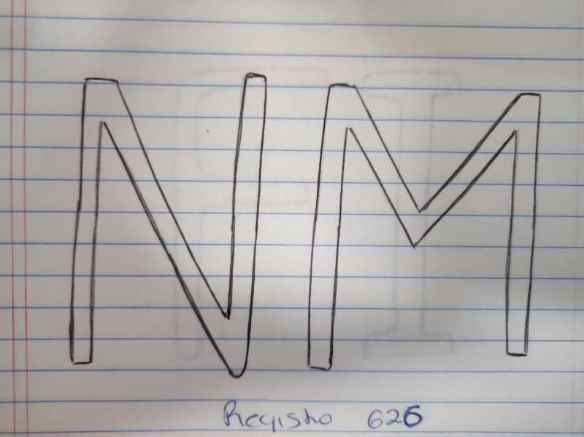 NM
Registro 626